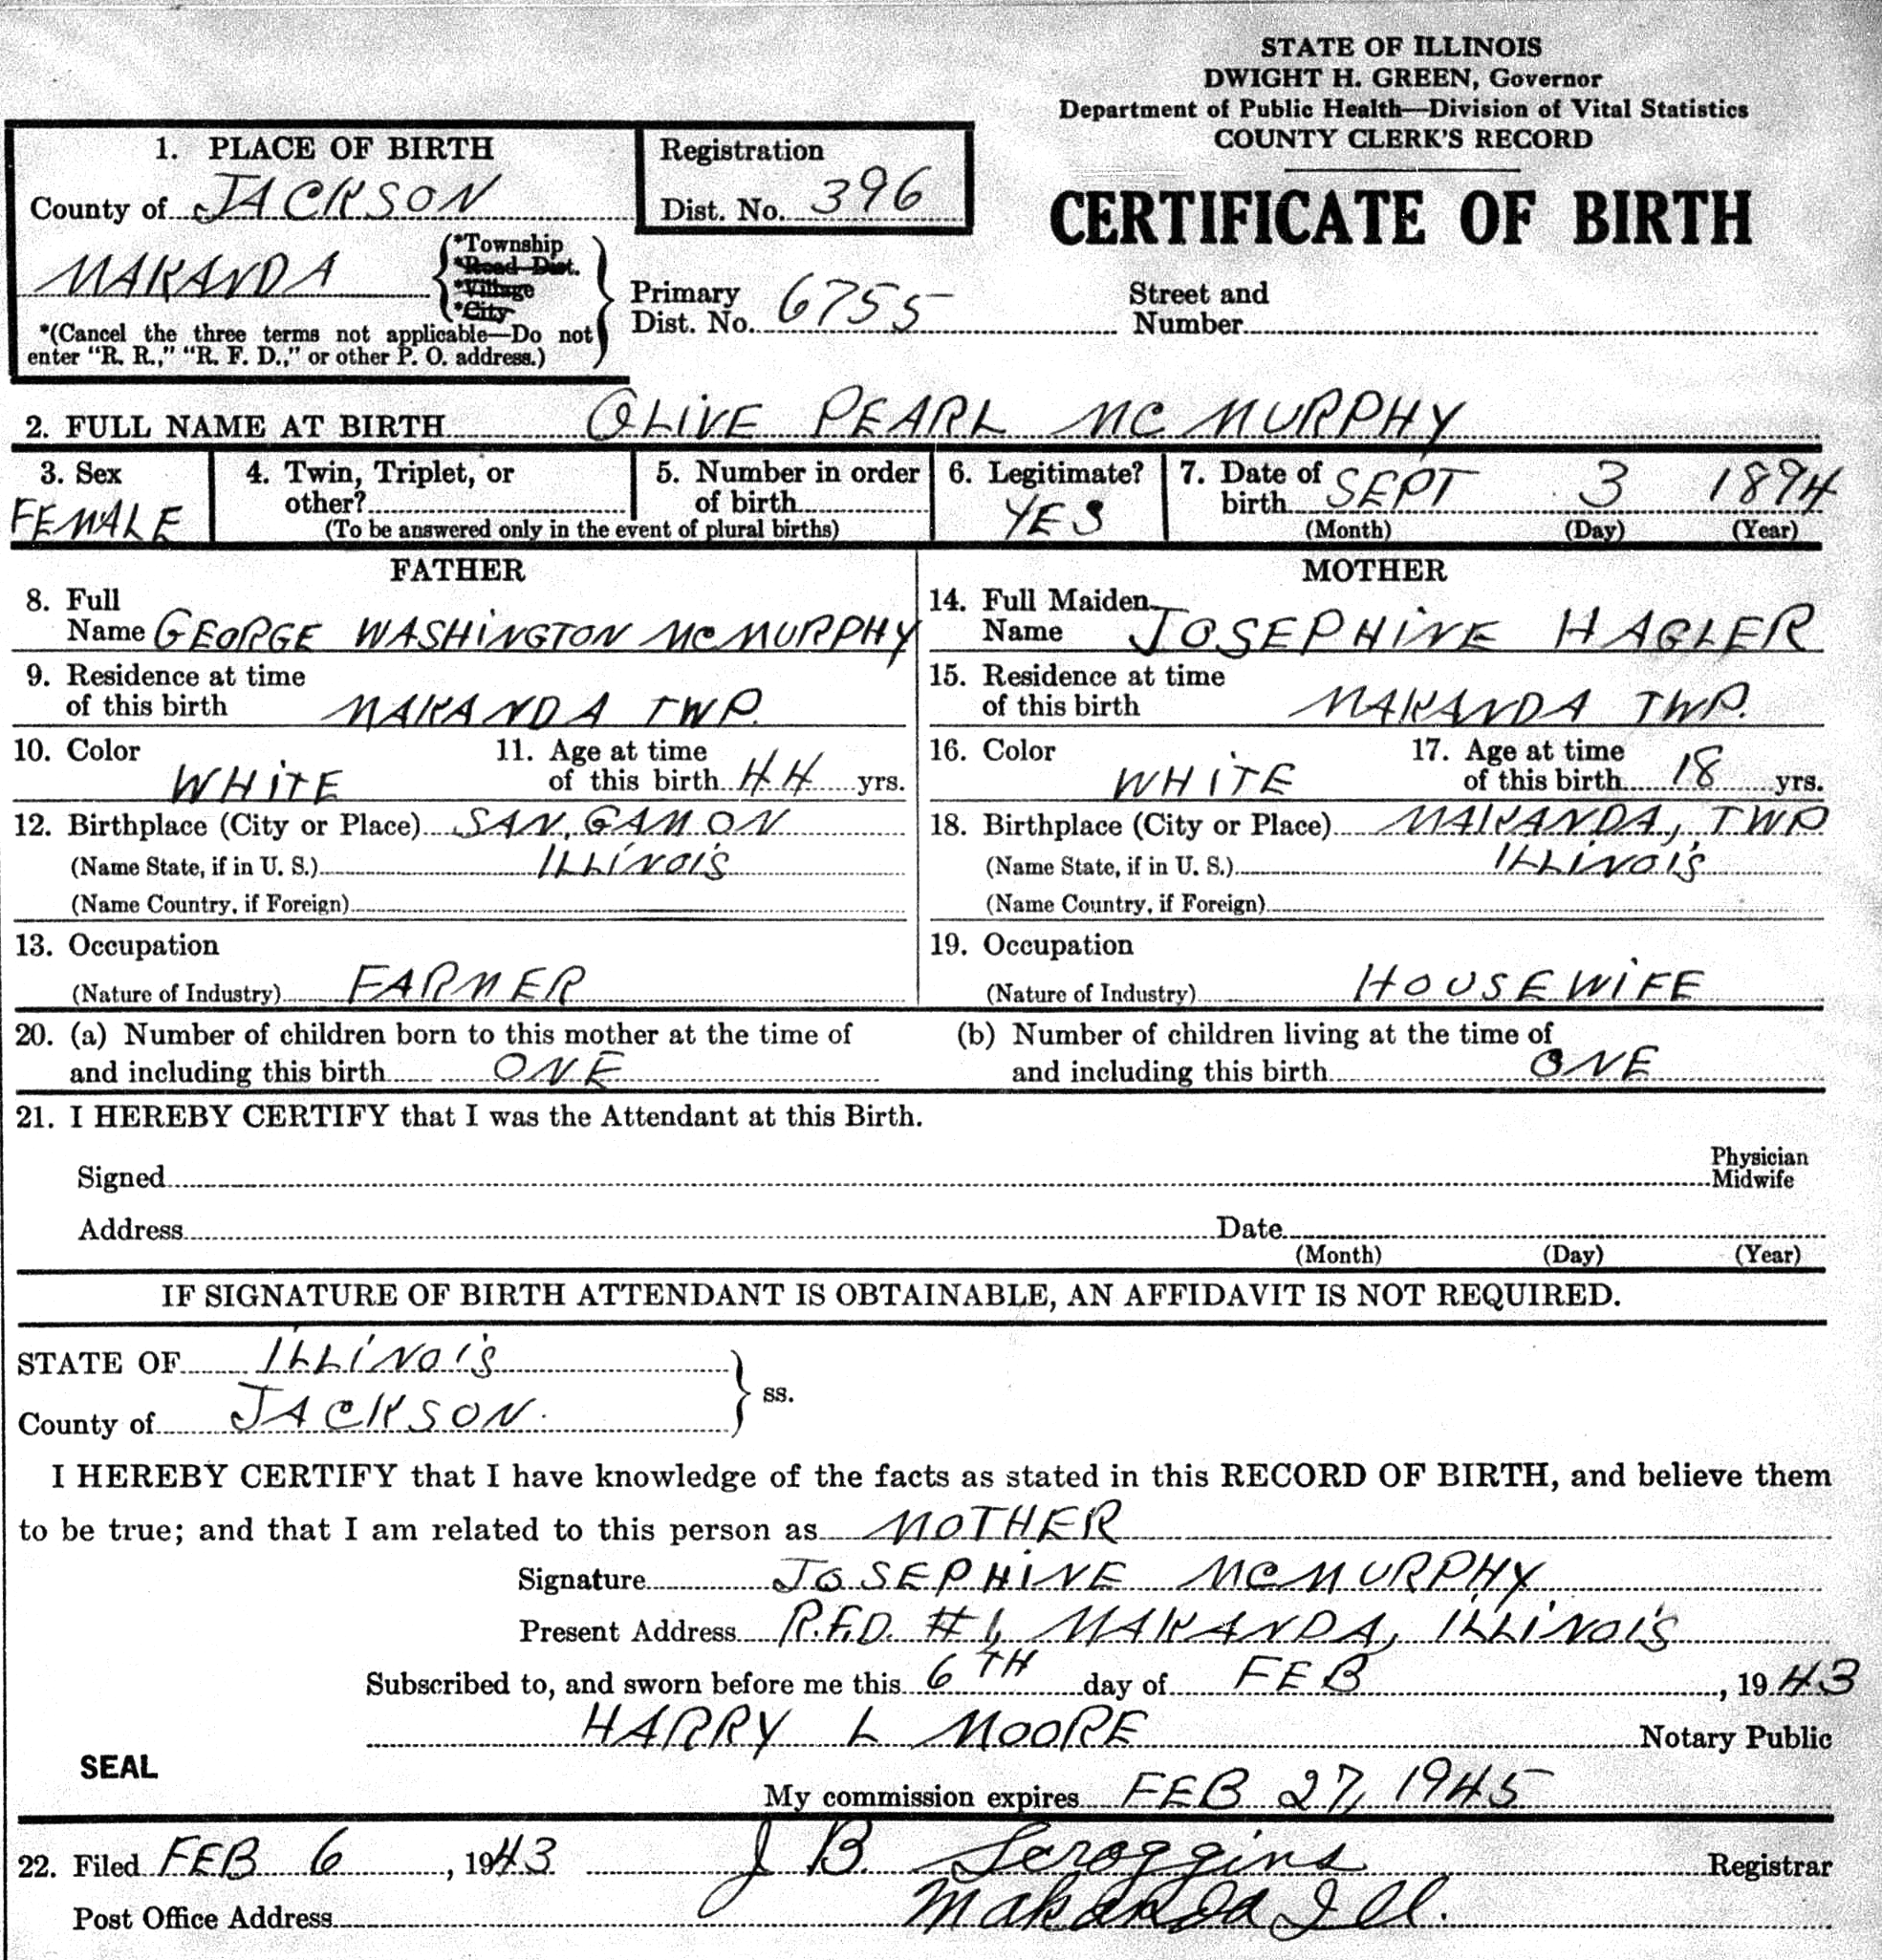 STATE OF ILLINOIS
DWIGHT H. GREEN, Governor
Department of Public Health—Division of Vital Statistics
COUNTY CLERK'S RECORD
CERTIFICATE OF BIRTH
1. PLACE OF BIRTH
County of JACKSON
MAKANDA
*Township
*Road Dist.
*Village
*City
*(Cancel the three terms not applicable—Do not
enter "R. R.," "R. F. D.," or other P. O. address.)
Registration
Dist. No. 396
Primary
Dist. No. 6755
Street and
Number
2. FULL NAME AT BIRTH OLIVE PEARL MC MURPHY
3. Sex
FEMALE
4. Twin, Triplet, or
other?
5. Number in order
of birth
(To be answered only in the event of plural births)
6. Legitimate?
YES
7. Date of
birth SEPT 3 1894
(Month) (Day) (Year)
FATHER
8. Full
Name GEORGE WASHINGTON MCMURPHY
9. Residence at time
of this birth MAKANDA TWP.
10. Color
WHITE
11. Age at time
of this birth 44 yrs.
12. Birthplace (City or Place) SAN, GAMON
(Name State, if in U. S.) ILLINOIS
(Name Country, if Foreign)
13. Occupation
(Nature of Industry) FARMER
MOTHER
14. Full Maiden
Name JOSEPHINE HAGLER
15. Residence at time
of this birth MAKANDA TWP.
16. Color
WHITE
17. Age at time
of this birth 18 yrs.
18. Birthplace (City or Place) MAKANDA, TWP
(Name State, if in U. S.) ILLINOIS
(Name Country, if Foreign)
19. Occupation
(Nature of Industry) HOUSEWIFE
20. (a) Number of children born to this mother at the time of
and including this birth ONE
(b) Number of children living at the time of
and including this birth ONE
21. I HEREBY CERTIFY that I was the Attendant at this Birth.
Signed Physician
Midwife
Address Date
(Month) (Day) (Year)
IF SIGNATURE OF BIRTH ATTENDANT IS OBTAINABLE, AN AFFIDAVIT IS NOT REQUIRED.
STATE OF ILLINOIS
County of JACKSON.
ss.
I HEREBY CERTIFY that I have knowledge of the facts as stated in this RECORD OF BIRTH, and believe them
to be true; and that I am related to this person as MOTHER
Signature JOSEPHINE MCMURPHY
Present Address R.F.D. #1, MAKANDA, ILLINOIS
Subscribed to, and sworn before me this 6TH day of FEB, 1943
HARRY L MOORE Notary Public
SEAL
My commission expires FEB 27, 1945
22. Filed FEB 6, 1943 J B. Scroggins Registrar
Post Office Address Makanda Ill.